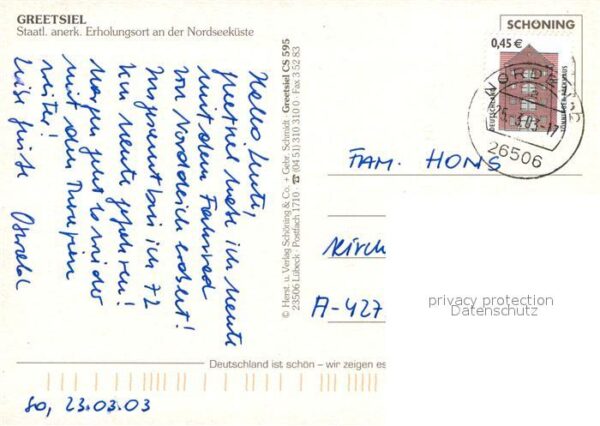 GREETSIEL
Staatl. anerk. Erholungsort an der Nordseeküste
Hallo Leute,
Greetsiel habe ich heute
mit dem Fahrrad
von Norddeich erobert!
Insgesamt bin ich 72
km heute gefahren!
Morgen geht es wieder
mit den Therapien
weiter!
Liebe Grüße Oswald
So, 23.03.03
© Herst. u. Verlag Schöning & Co. + Gebr. Schmidt · Greetsiel CS 595
23506 Lübeck · Postfach 1710 · ☎ (04 51) 310 310 0 · Fax 3 52 83
SCHÖNING
0,45 €
DEUTSCHLAND
TÖNNINGER PACKHAUS
NORDEN
26506
FAM. HONS
Kirch
A-427
privacy protection
Datenschutz
Deutschland ist schön – wir zeigen es